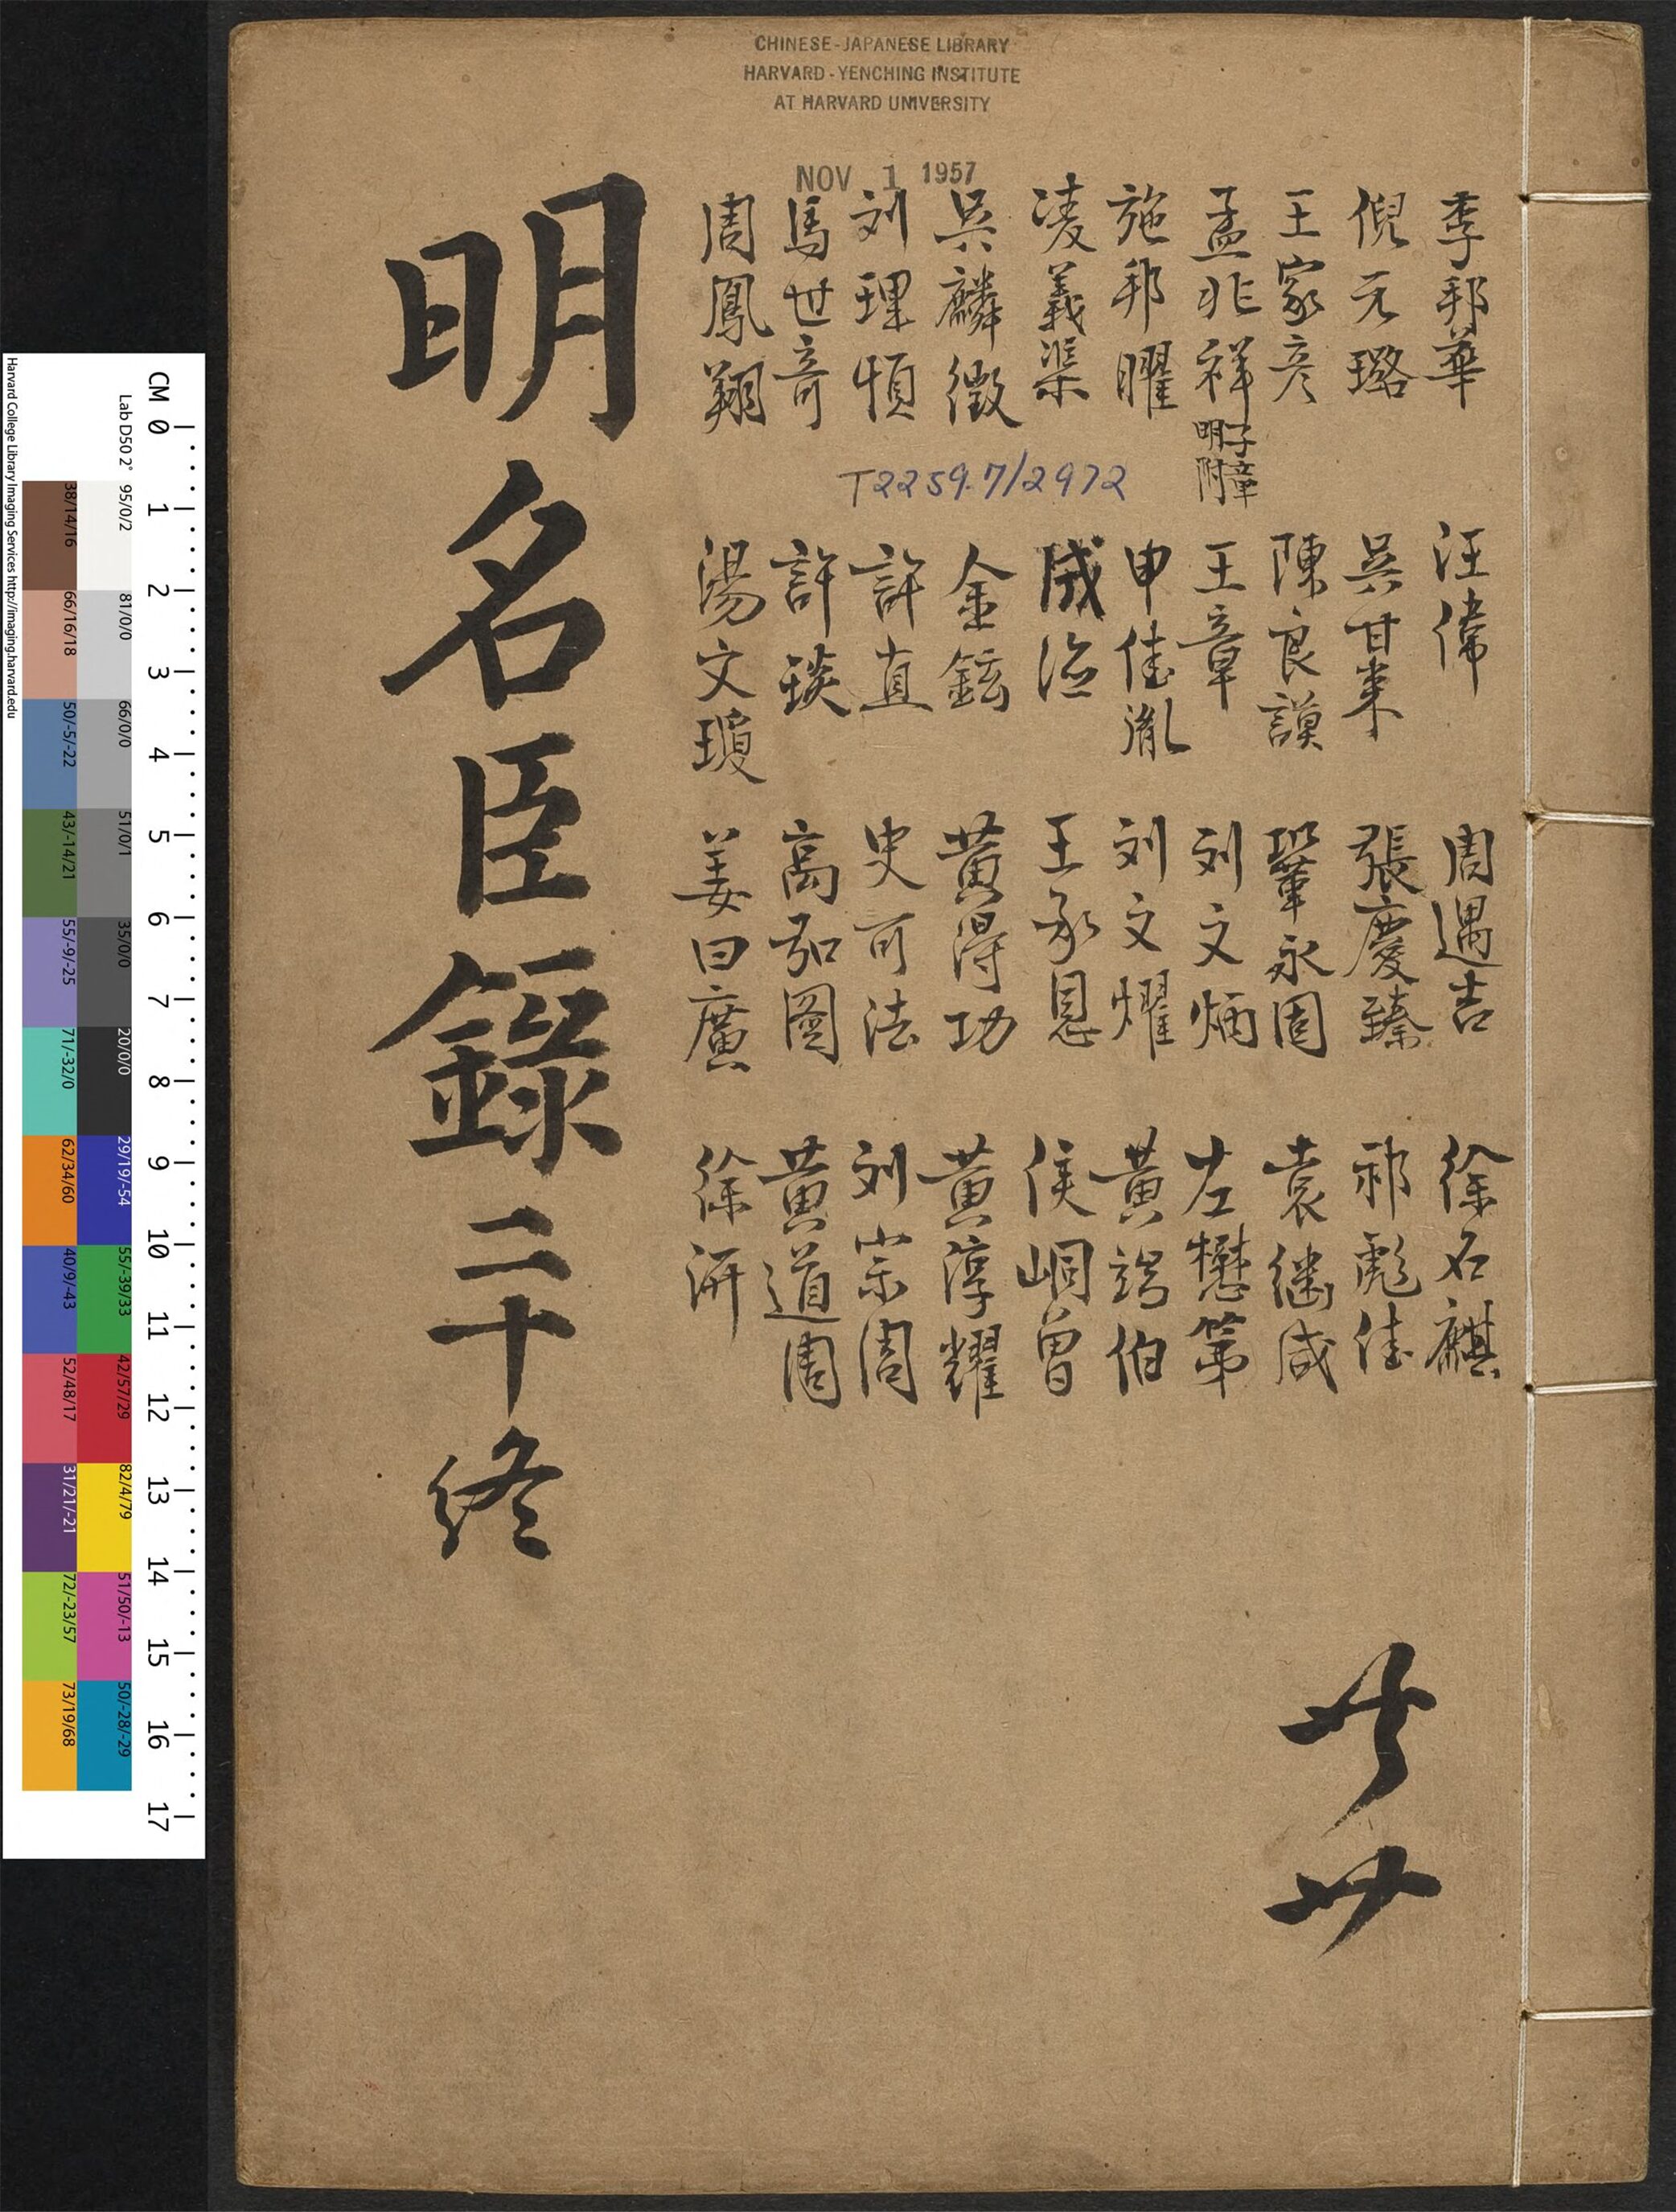 CHINESE-JAPANESE LIBRARY
HARVARD-YENCHING INSTITUTE
AT HARVARD UNIVERSITY
NOV 1 1957
李邦華
倪元璐
王家彦
孟兆祥 子章明附
施邦曜
凌義渠
吳麟徴
刘理順
馬世竒
周鳳翔
T2259.7/2972
汪偉
吳甘來
陳良謨
王章
申佳胤
成德
金鉉
許直
許琰
湯文瓊
周遇吉
張慶臻
鞏永固
刘文炳
刘文燿
王承恩
黃淂功
史可法
高弘圖
姜曰廣
徐石麒
祁彪佳
袁継咸
左懋第
黃端伯
侯峒曾
黃淳耀
刘宗周
黃道周
徐汧
明名臣錄二十終
共廿
CM 0 1 2 3 4 5 6 7 8 9 10 11 12 13 14 15 16 17
Lab D50 2° 95/0/2 81/0/0 66/0/0 51/0/1 35/0/0 20/0/0 29/19/-54 55/-39/33 42/57/29 82/4/79 51/50/-13 50/-28/-29
38/14/16 66/16/18 50/-5/-22 43/-14/21 55/-9/-25 71/-32/0 62/34/60 40/9/-43 52/48/17 31/21/-21 72/-23/57 73/19/68
Harvard College Library Imaging Services http://imaging.harvard.edu